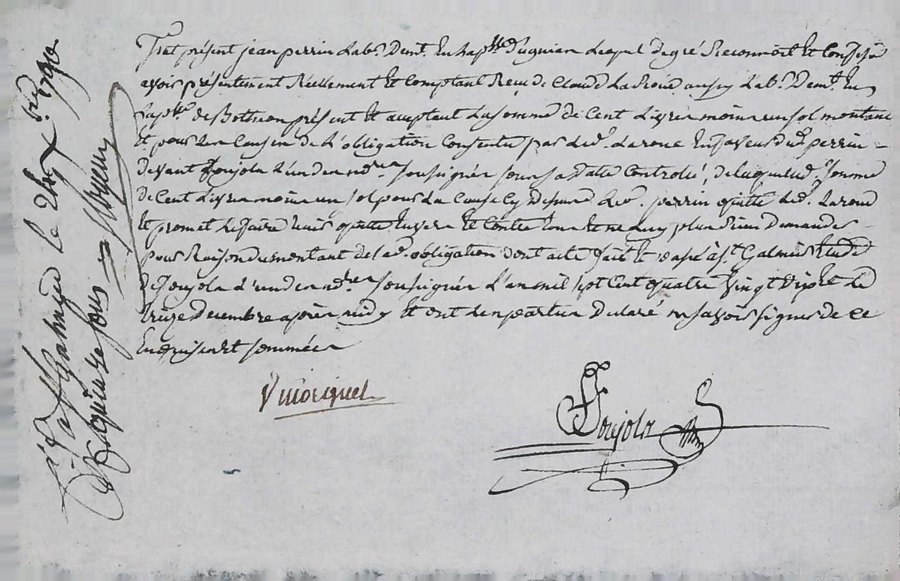 fut présent jean perrin lab.r dem.t En la p.sse d'aveniau Lequel de gré Reconnoit Et Confesse
avoir présentement Réellement Et Comptant Receu de Claud Laroue aussy Lab.r dem.t En
la p.sse de Bothéon présent Et acceptant La somme de Cent Livres moins un sol montant
Et pour Les Causes de L'obligation Consentie par led.t Laroue En faveur dud.t perrin
devant Goujola L'un des no.res soussignés sous sa date Controllé, de laquelle d.e somme
de Cent Livres moins un sol pour La Cause Cy dessus led.t perrin quitte led.t Laroue
Et promet Le faire tenir quitte Envers Et Contre tous Et ne luy plus Rien demander
pour Raison du montant de lad.e obligation dont acte fait Et passé à S.t Galmier Etude
de Goujola L'un des no.res soussignés L'an mil sept Cent quatre vingt dix Le
treize décembre après midy Et ont Les parties déclaré ne savoir signer de Ce
Enquis et sommées
Vincignet
Goujola
à S.t Galmier le 24 X.bre 1790
Reçu quinze sous